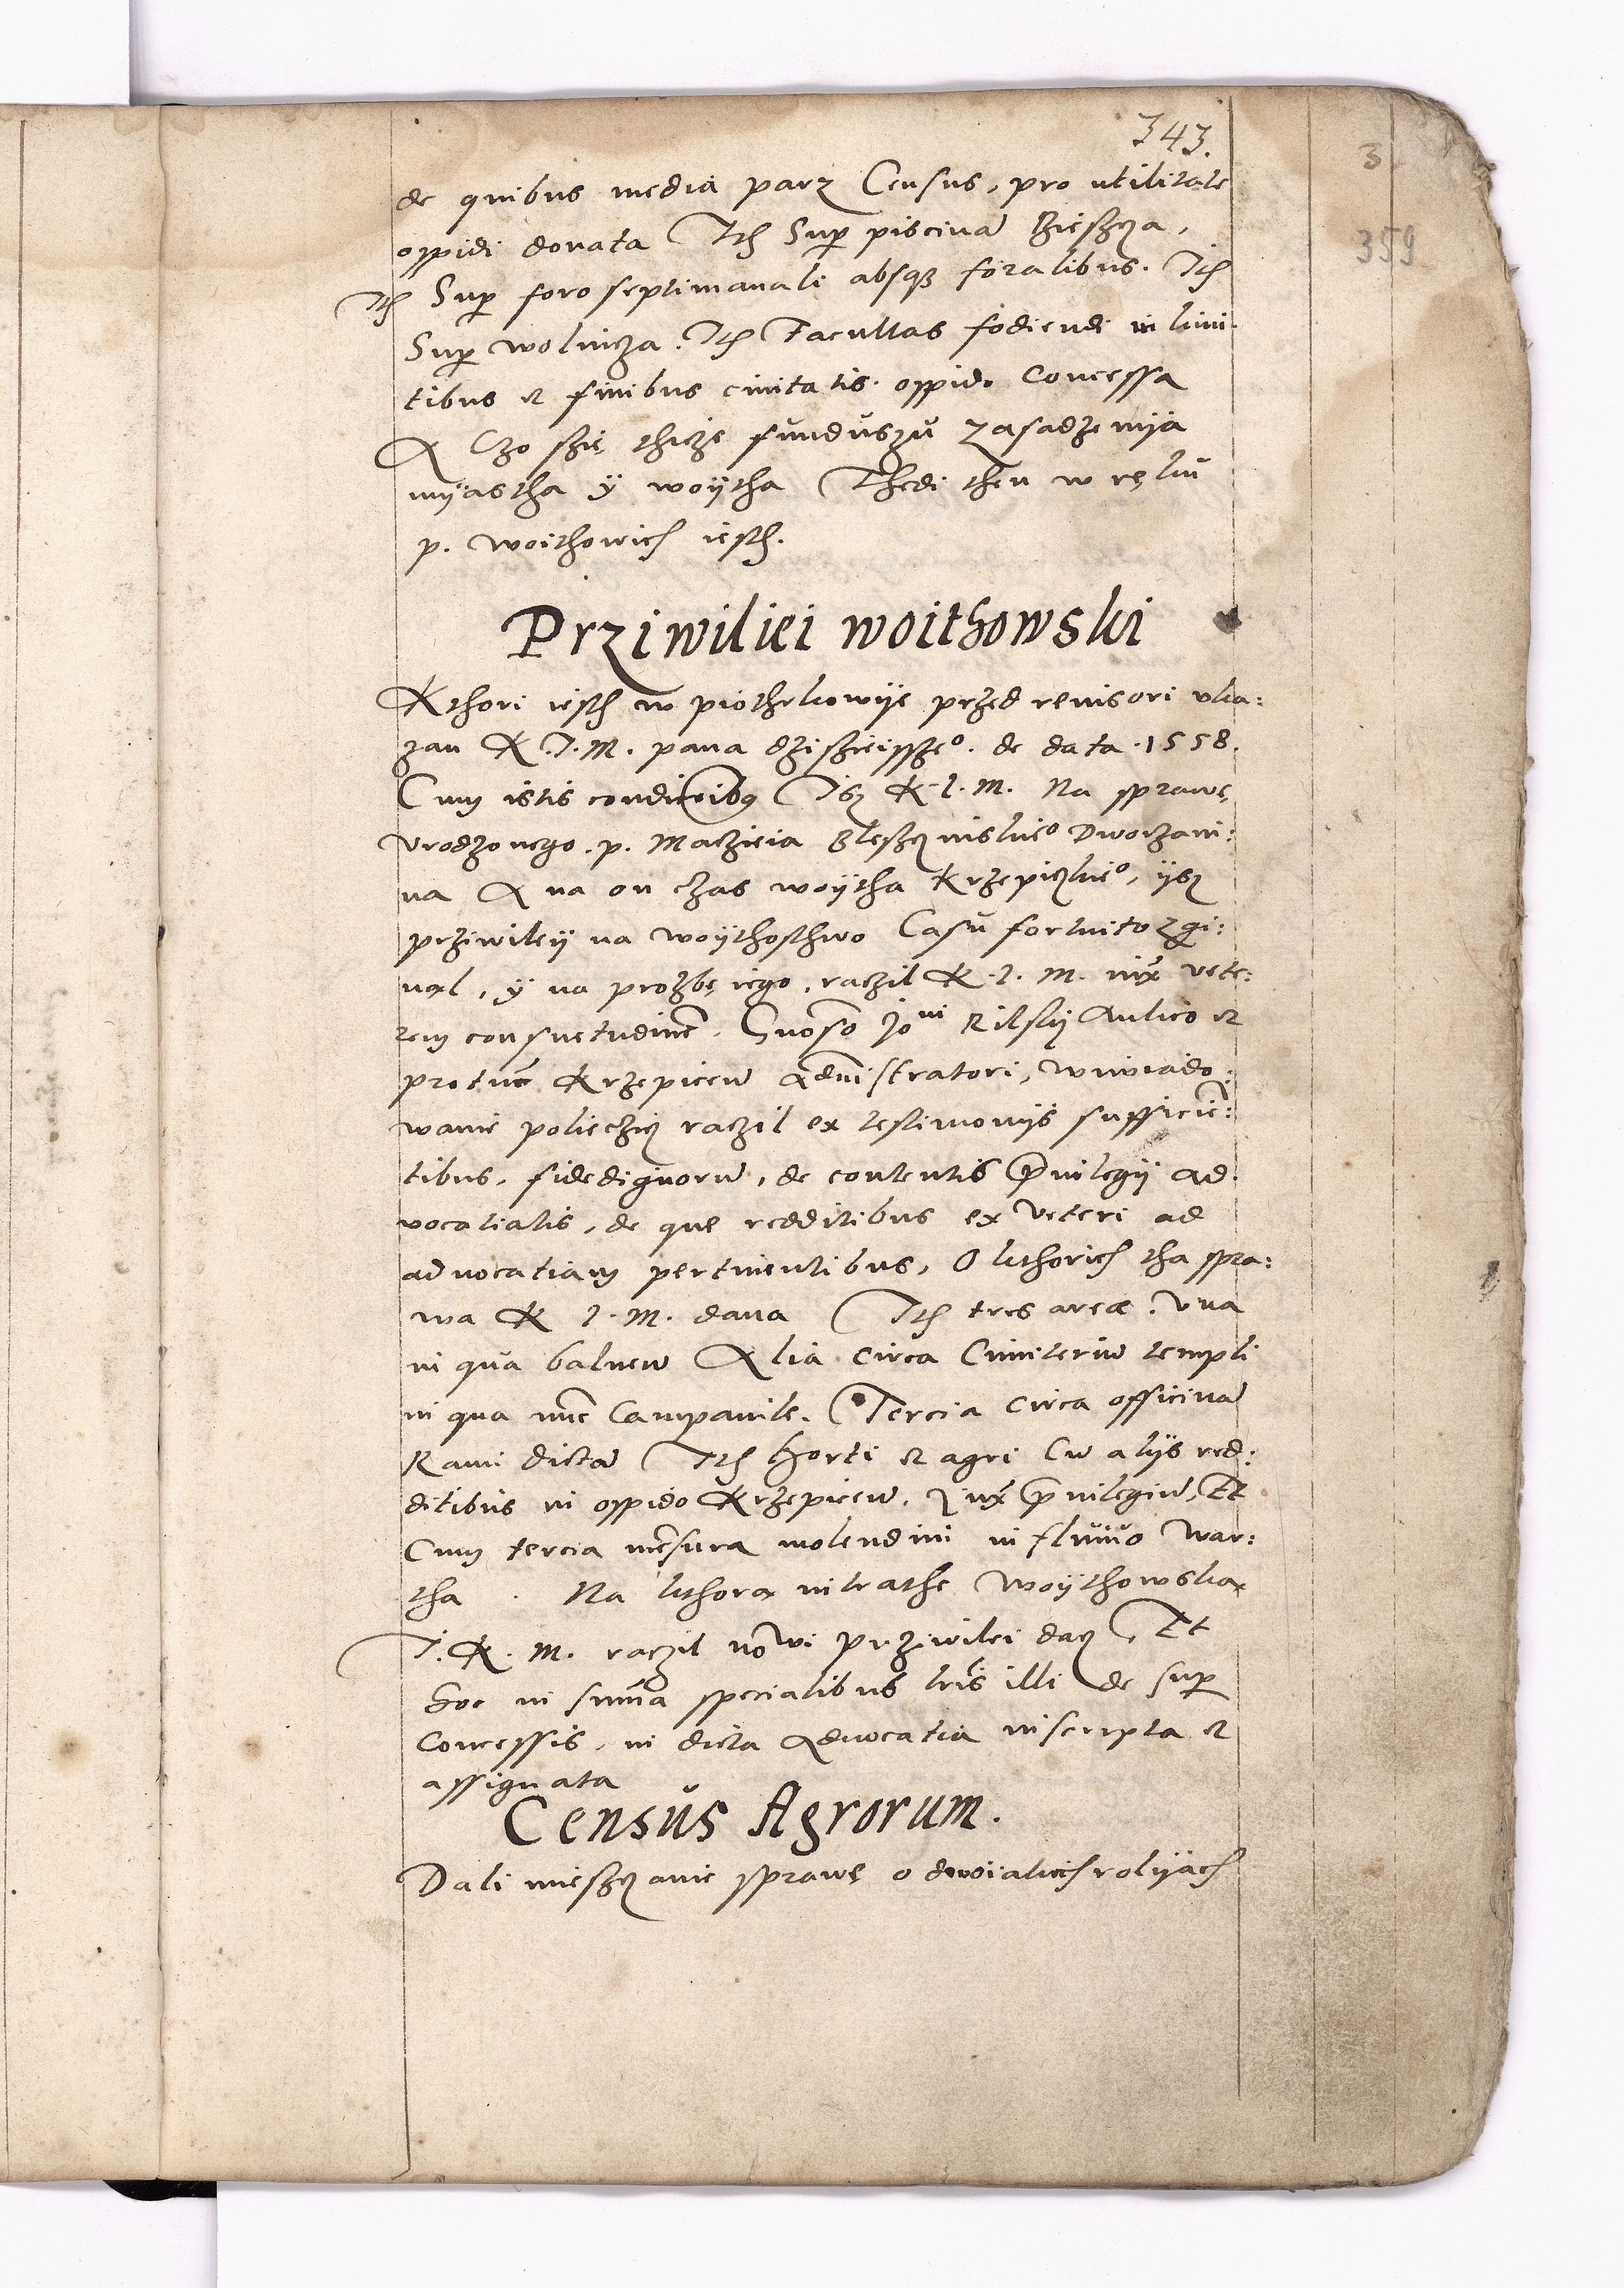 343.
3
359
de quibus media parz Census, pro utilitate
oppidi donata Ith Sup piscina
Ith Sup foro septimanali absqz foralibus. Ith
Sup wolnicza. Ith Facultas fodiendi in limi-
tibus et finibus ciuitatis oppido concessa
A Czo szię thicze funduszu zasadzenija
mÿastha ÿ woÿtha Thedi then w ręku
p. woithowich iesth.
Prziwiliei woithowski
Kthori iesth w piothrkowije przed reuisori uka:
zan K. J. M. pana dzisieisszeo. de data 1558.
Cum istis conditioibq Isz K. J. M. Na sprawę
urodzonego. p. Maczieia Bleszÿnskieo Dworzani:
na A na on czas woÿtha Krzepiczkieo, ÿsz
prziwileÿ na woÿthosthwo Casu fortuito zgi:
nął, ÿ na prozbę iego, raczil K. J. M. iux vete:
rem consuetudine. Gnoso Joni Rilskÿ Aulico et
protuc Krzepicen administratori, wiwiado:
wanie poliecziç raczil ex testimonijs sufficie:
tibus, fidedignoru, de contentis privilegij ad
vocatialis, de que redditibus ex veteri ad
aduocatiam pertinentibus, O kthorich tha spra:
wa K J. M. dana Ith tres areæ. Vna
in qua balneu Alia circa Cimiteriu templi
in qua nuc Campanile. Tercia circa officina
Rami dicta Ith Horti et agri Cu alijs red:
ditibus in oppido Krzepicen, Iux privilegiu, Et
Cum tercia mesura molendini in fluuio War:
tha . Na kthorą intrathę Woÿthowską
J. K. M. raczil nowi prziwilei dacz, Et
hoc in suma specialibus lris illi de sup
concessis, in dicta Aduocatia inscripta et
assignata
Census Agrorum.
Dali mieszczanie sprawę o dwoiakich rolijach